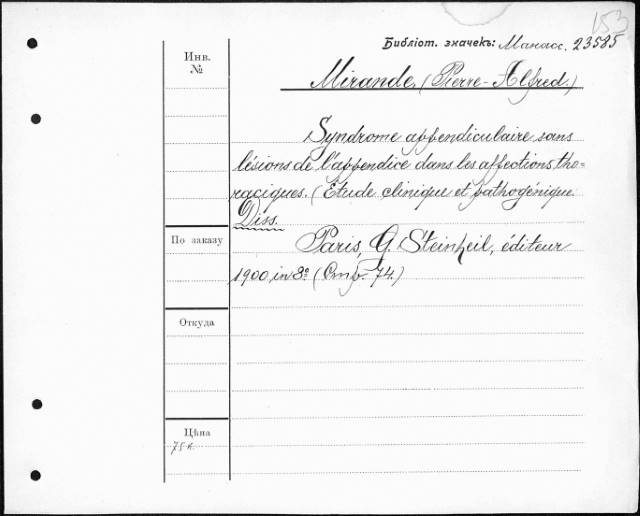 153
Библіот. значекъ: Манасс. 23585
Инв.
№
Mirande. (Pierre-Alfred.)
Syndrome appendiculaire sans
lésions de l'appendice dans les affections tho=
raciques. (Etude clinique et pathogénique
Diss.
По заказу
Paris, G. Steinheil, éditeur
1900, in 8º (Стр. 74.)
Откуда
Цѣна
75 к.